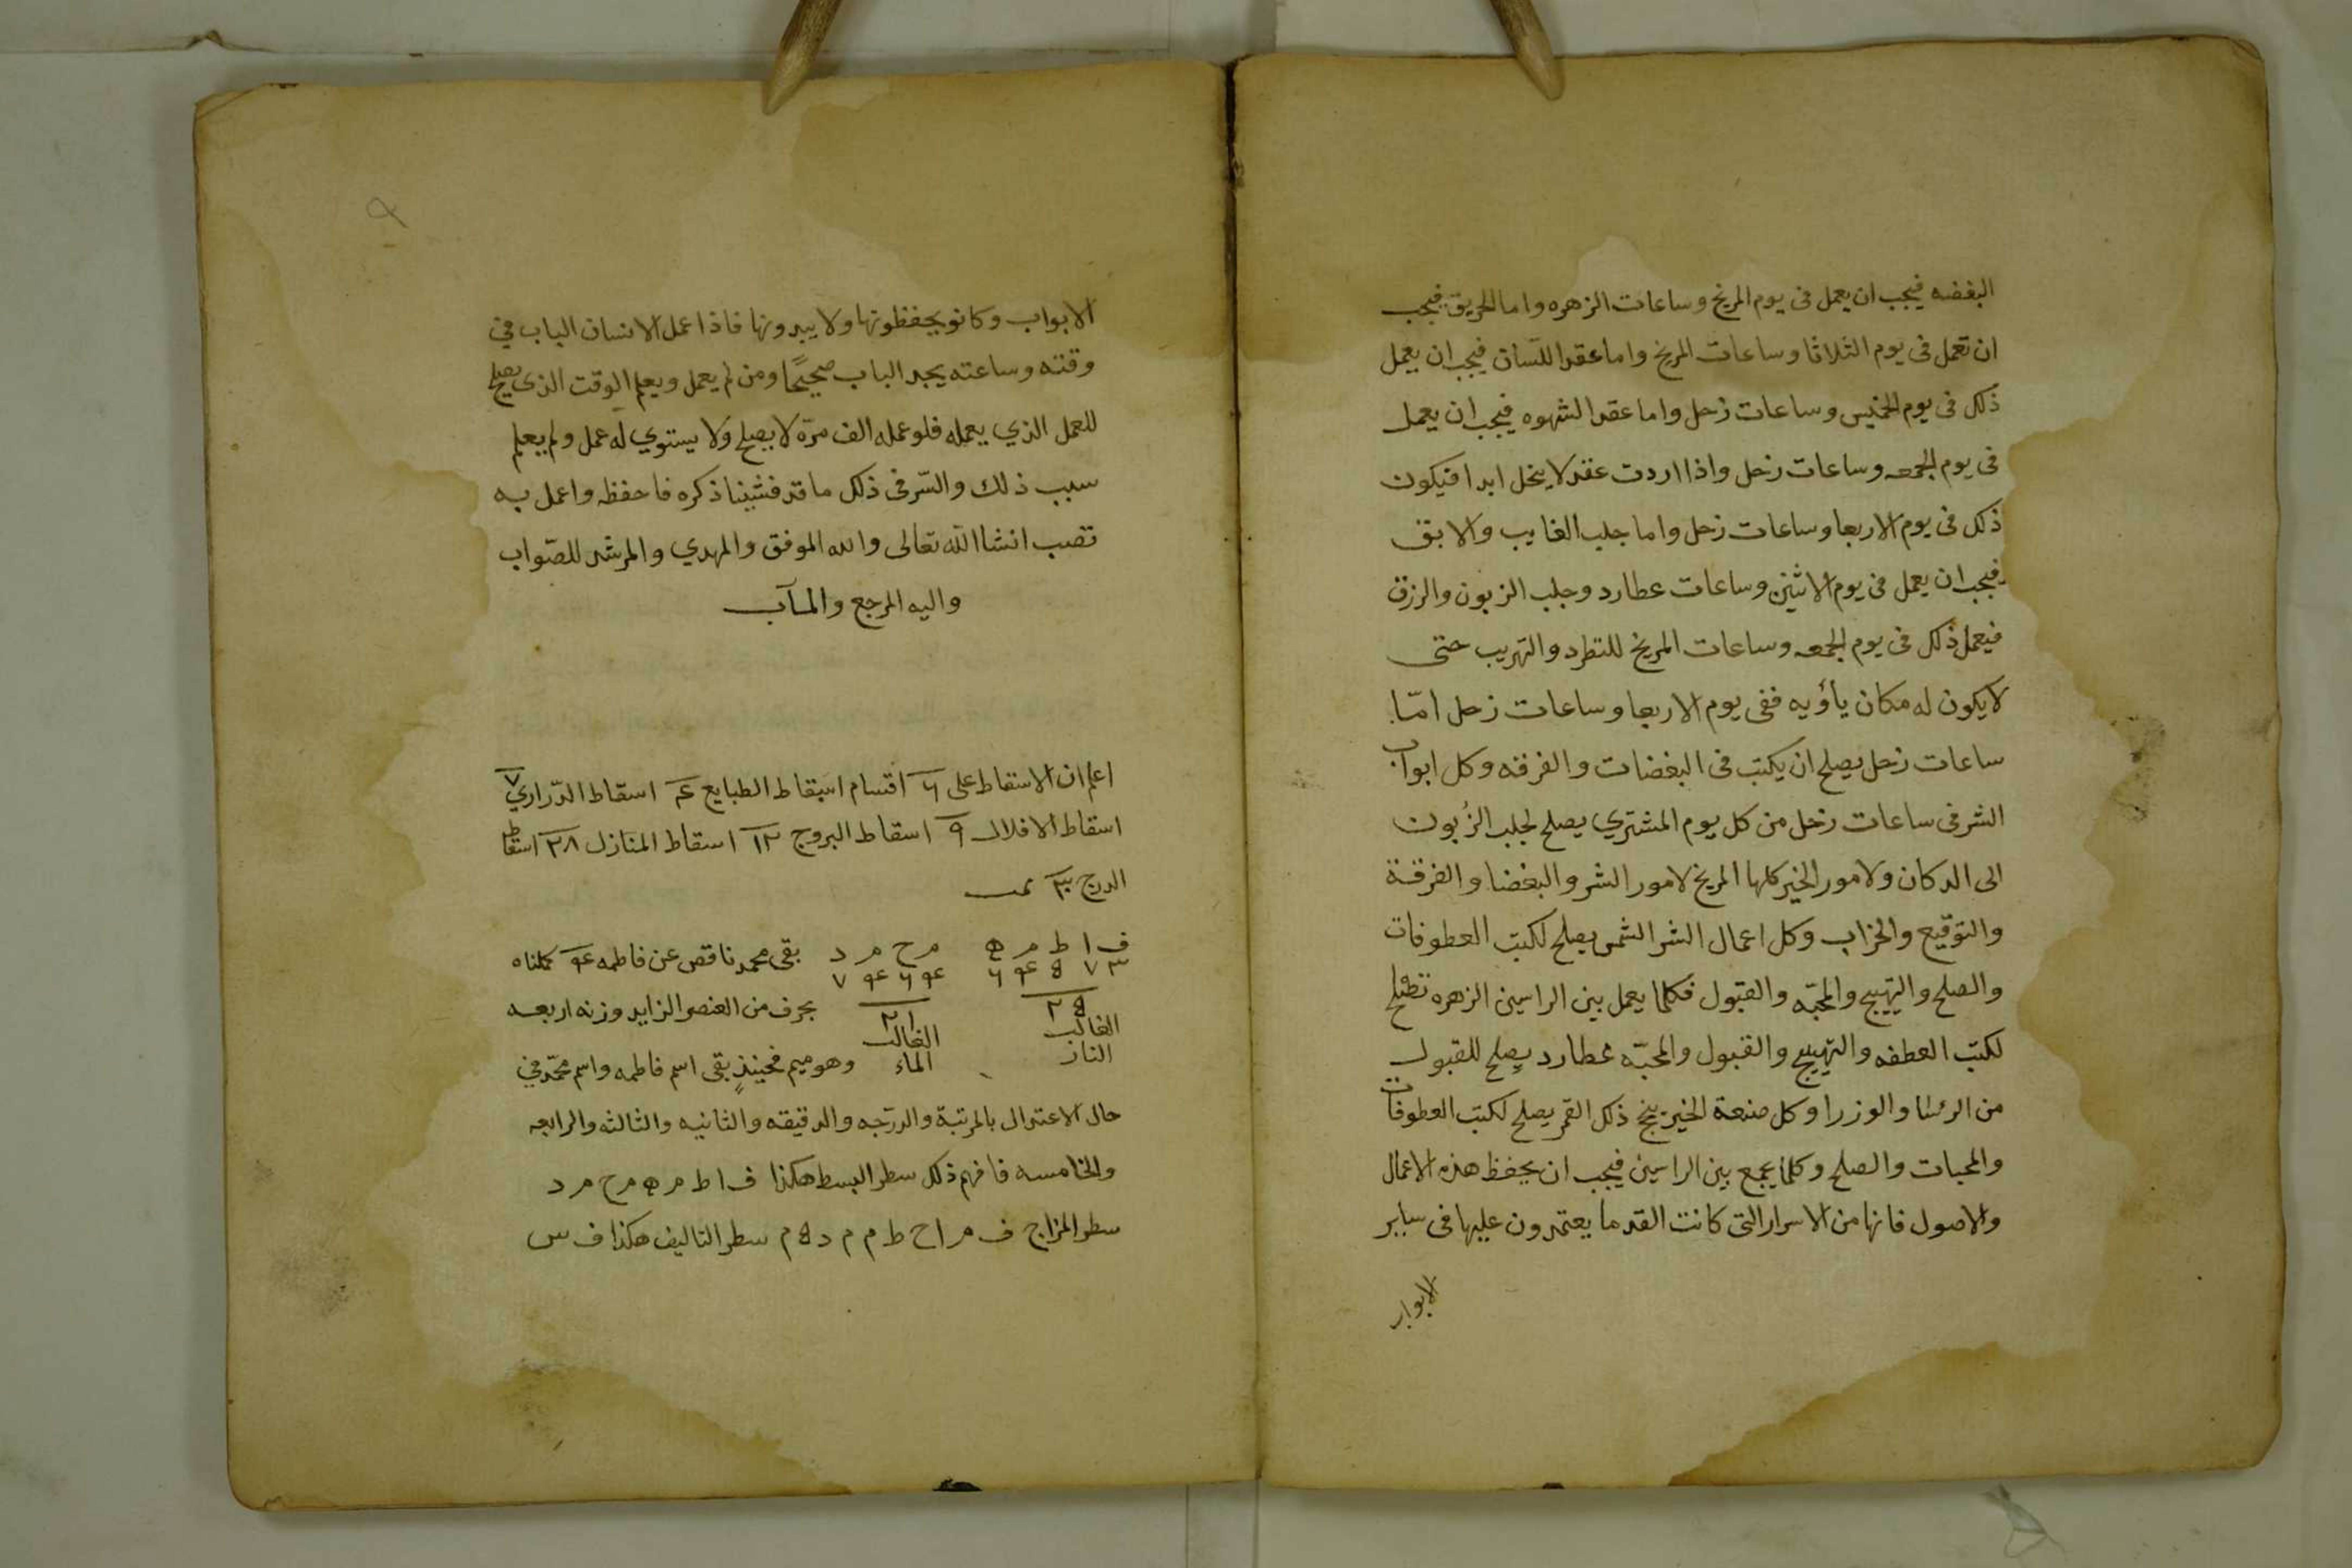 البغضه فيجب ان يعمل فى يوم المريخ وساعات الزهره واما الحريق فيجب
ان تعمل فى يوم الثلاثا وساعات المريخ واما عقد اللسان فيجب ان يعمل
ذلك فى يوم الخميس وساعات زحل واما عقد الشهوه فيجب ان يعمل
فى يوم الجمعه وساعات زحل واذا اردت عقد لا ينحل ابدا فيكون
ذلك فى يوم الاربعا وساعات زحل واما جلب الغايب والابق
فيجب ان يعمل فى يوم الاثنين وساعات عطارد وجلب الزبون والرزق
فيعمل ذلك فى يوم الجمعه وساعات المريخ للتطرد والتهريب حتى
لا يكون له مكان يأويه ففى يوم الاربعا وساعات زحل امّا
ساعات زحل يصلح ان يكتب فى البغضات والفرقه وكل ابواب
الشر فى ساعات زحل من كل يوم المشتري يصلح لجلب الزبون
الى الدكان ولامور الخير كلها المريخ لامور الشر والبغضا والفرقة
والتوقيع والخراب وكل اعمال الشر الشمس يصلح لكتب العطوفات
والصلح والتهييج والمحبّه والقبول فكلما يعمل بين الراسين الزهره تصلح
لكتب العطفه والتهييج والقبول والمحبّه عطارد يصلح للقبول
من الرئسا والوزرا وكل صنعة الخير ذلك القمر يصلح لكتب العطوفات
والمحبات والصلح وكلما يجمع بين الراسين فيجب ان يحفظ هذه الاعمال
والاصول فانها من الاسرار التى كانت القدما يعتمدون عليها فى ساير
الابواب
الابواب وكانو يحفظونها ولا يبدونها فاذا عمل الانسان الباب في
وقته وساعته يجد الباب صحيحًا ومن لم يعمل ويعلم الوقت الذى يصلح
للعمل الذي يعمله فلو عمله الف مرّه لا يصلح ولا يستوي له عمل ولم يعلم
سبب ذلك والسّر فى ذلك ما قد فشينا ذكره فاحفظه واعمل به
تصب انشا الله تعالى والله الموفق والمهدي والمرشد للصّواب
واليه المرجع والمآب
اعلم ان الاسقاط على ٦ اقسام اسقاط الطبايع ٤ اسقاط الدّراري ٧
اسقاط الافلاك ٩ اسقاط البروج ١٢ اسقاط المنازل ٢٨ اسقاط
الدرج ٣٠
ف ا ط م ه م ح م د بقى محمد ناقص عن فاطمه ٤ كملناه
٣ ٧ ٥ ٤ ٦ ٤ ٦ ٤ ٧
٢٥ ٢١ بحرف من العنصر الزايد وزنه اربعه
الغالب الغالب
النار الماء وهو ميم فحينئذٍ بقى اسم فاطمه واسم محمّد في
حال الاعتدال بالمرتبة والدرّجه والدقيقه والثانيه والثالثه والرابعه
والخامسه فافهم ذلك سطر البسط هكذا ف ا ط م ه م ح م د
سطر المزاج ف م ا ح ط م م د ه م سطر التاليف هكذا ف س